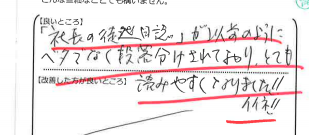 【良いところ】
「社長の徒然日誌」が以前のように
ベタでなく段落分けされており、とても
【改善した方が良いところ】 読みやすくなりました!!
イイネ!!